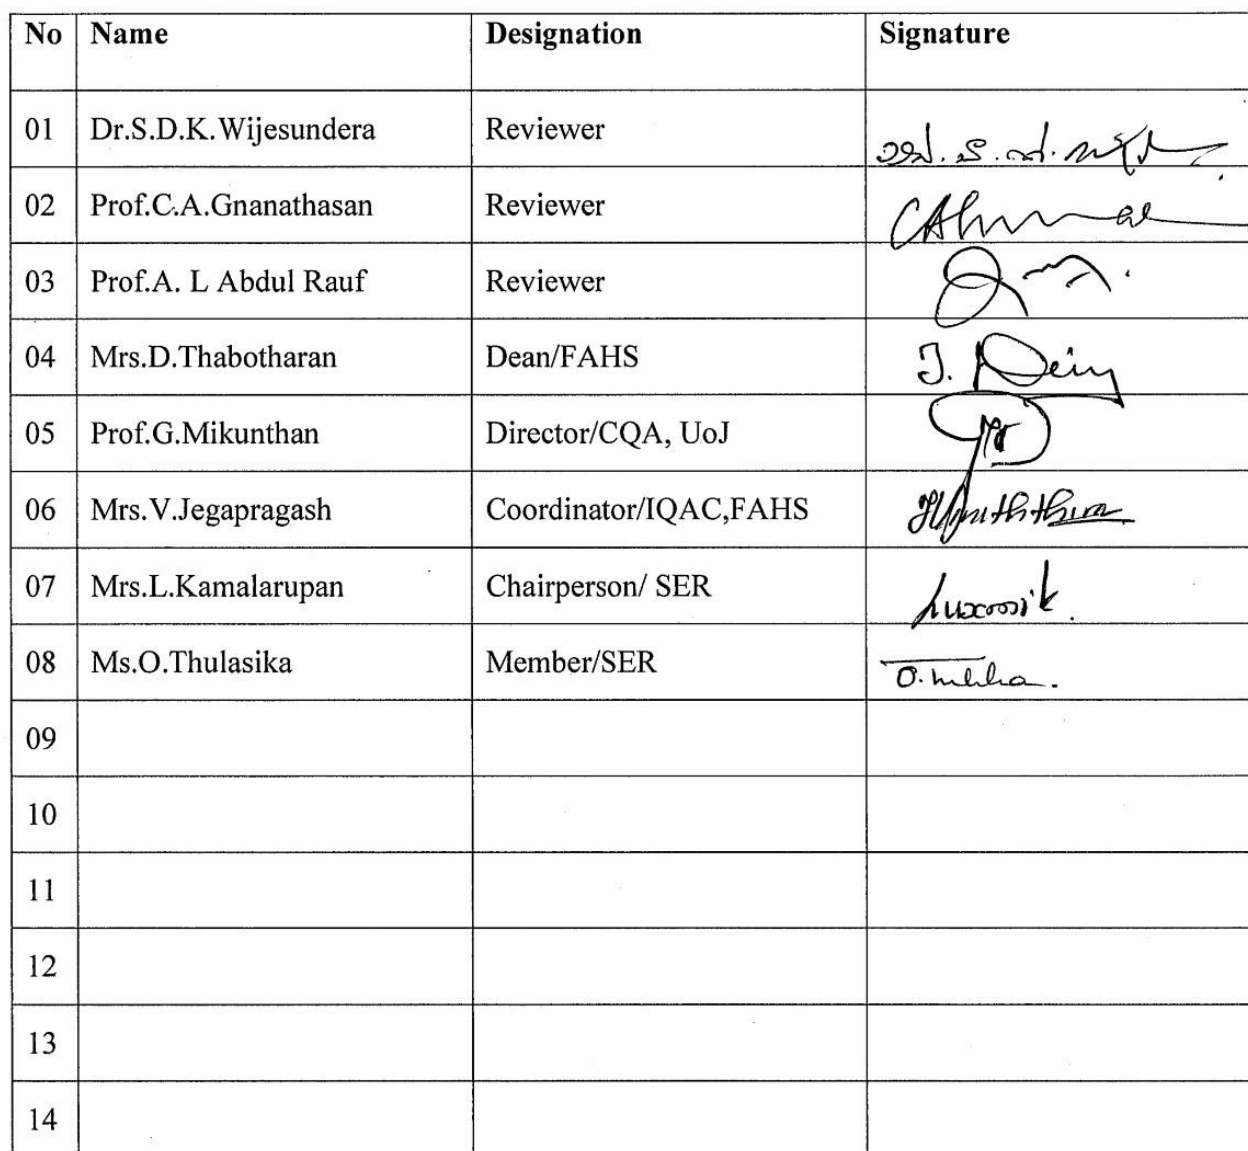 No Name Designation Signature
01 Dr.S.D.K.Wijesundera Reviewer
02 Prof.C.A.Gnanathasan Reviewer
03 Prof.A. L Abdul Rauf Reviewer
04 Mrs.D.Thabotharan Dean/FAHS
05 Prof.G.Mikunthan Director/CQA, UoJ
06 Mrs.V.Jegapragash Coordinator/IQAC,FAHS
07 Mrs.L.Kamalarupan Chairperson/ SER
08 Ms.O.Thulasika Member/SER
09
10
11
12
13
14